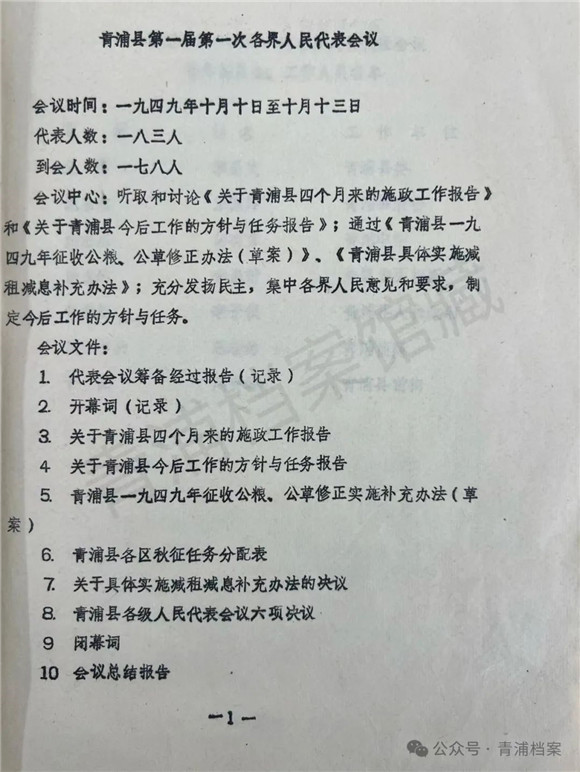 青浦县第一届第一次各界人民代表会议
会议时间：一九四九年十月十日至十月十三日
代表人数：一八三人
到会人数：一七八人
会议中心：听取和讨论《关于青浦县四个月来的施政工作报告》
和《关于青浦县今后工作的方针与任务报告》；通过《青浦县一九
四九年征收公粮、公草修正办法（草案）》、《青浦县具体实施减
租减息补充办法》；充分发扬民主，集中各界人民意见和要求，制
定今后工作的方针与任务。
会议文件：
1. 代表会议筹备经过报告（记录）
2. 开幕词（记录）
3. 关于青浦县四个月来的施政工作报告
4 关于青浦县今后工作的方针与任务报告
5. 青浦县一九四九年征收公粮、公草修正实施补充办法（草
案）
6. 青浦县各区秋征任务分配表
7. 关于具体实施减租减息补充办法的决议
8. 青浦县各级人民代表会议六项决议
9 闭幕词
10 会议总结报告
—1—
青浦档案馆藏
公众号·青浦档案